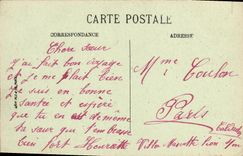 CARTE POSTALE
CORRESPONDANCE
ADRESSE
Chère sœur
J'ai fait bon voyage
et je me plait bien
je suis en bonne
santée et espère
que tu en est de même
ta sœur que t'embrasse
bien fort Henriette
Mme Coulon
Paris
Villa